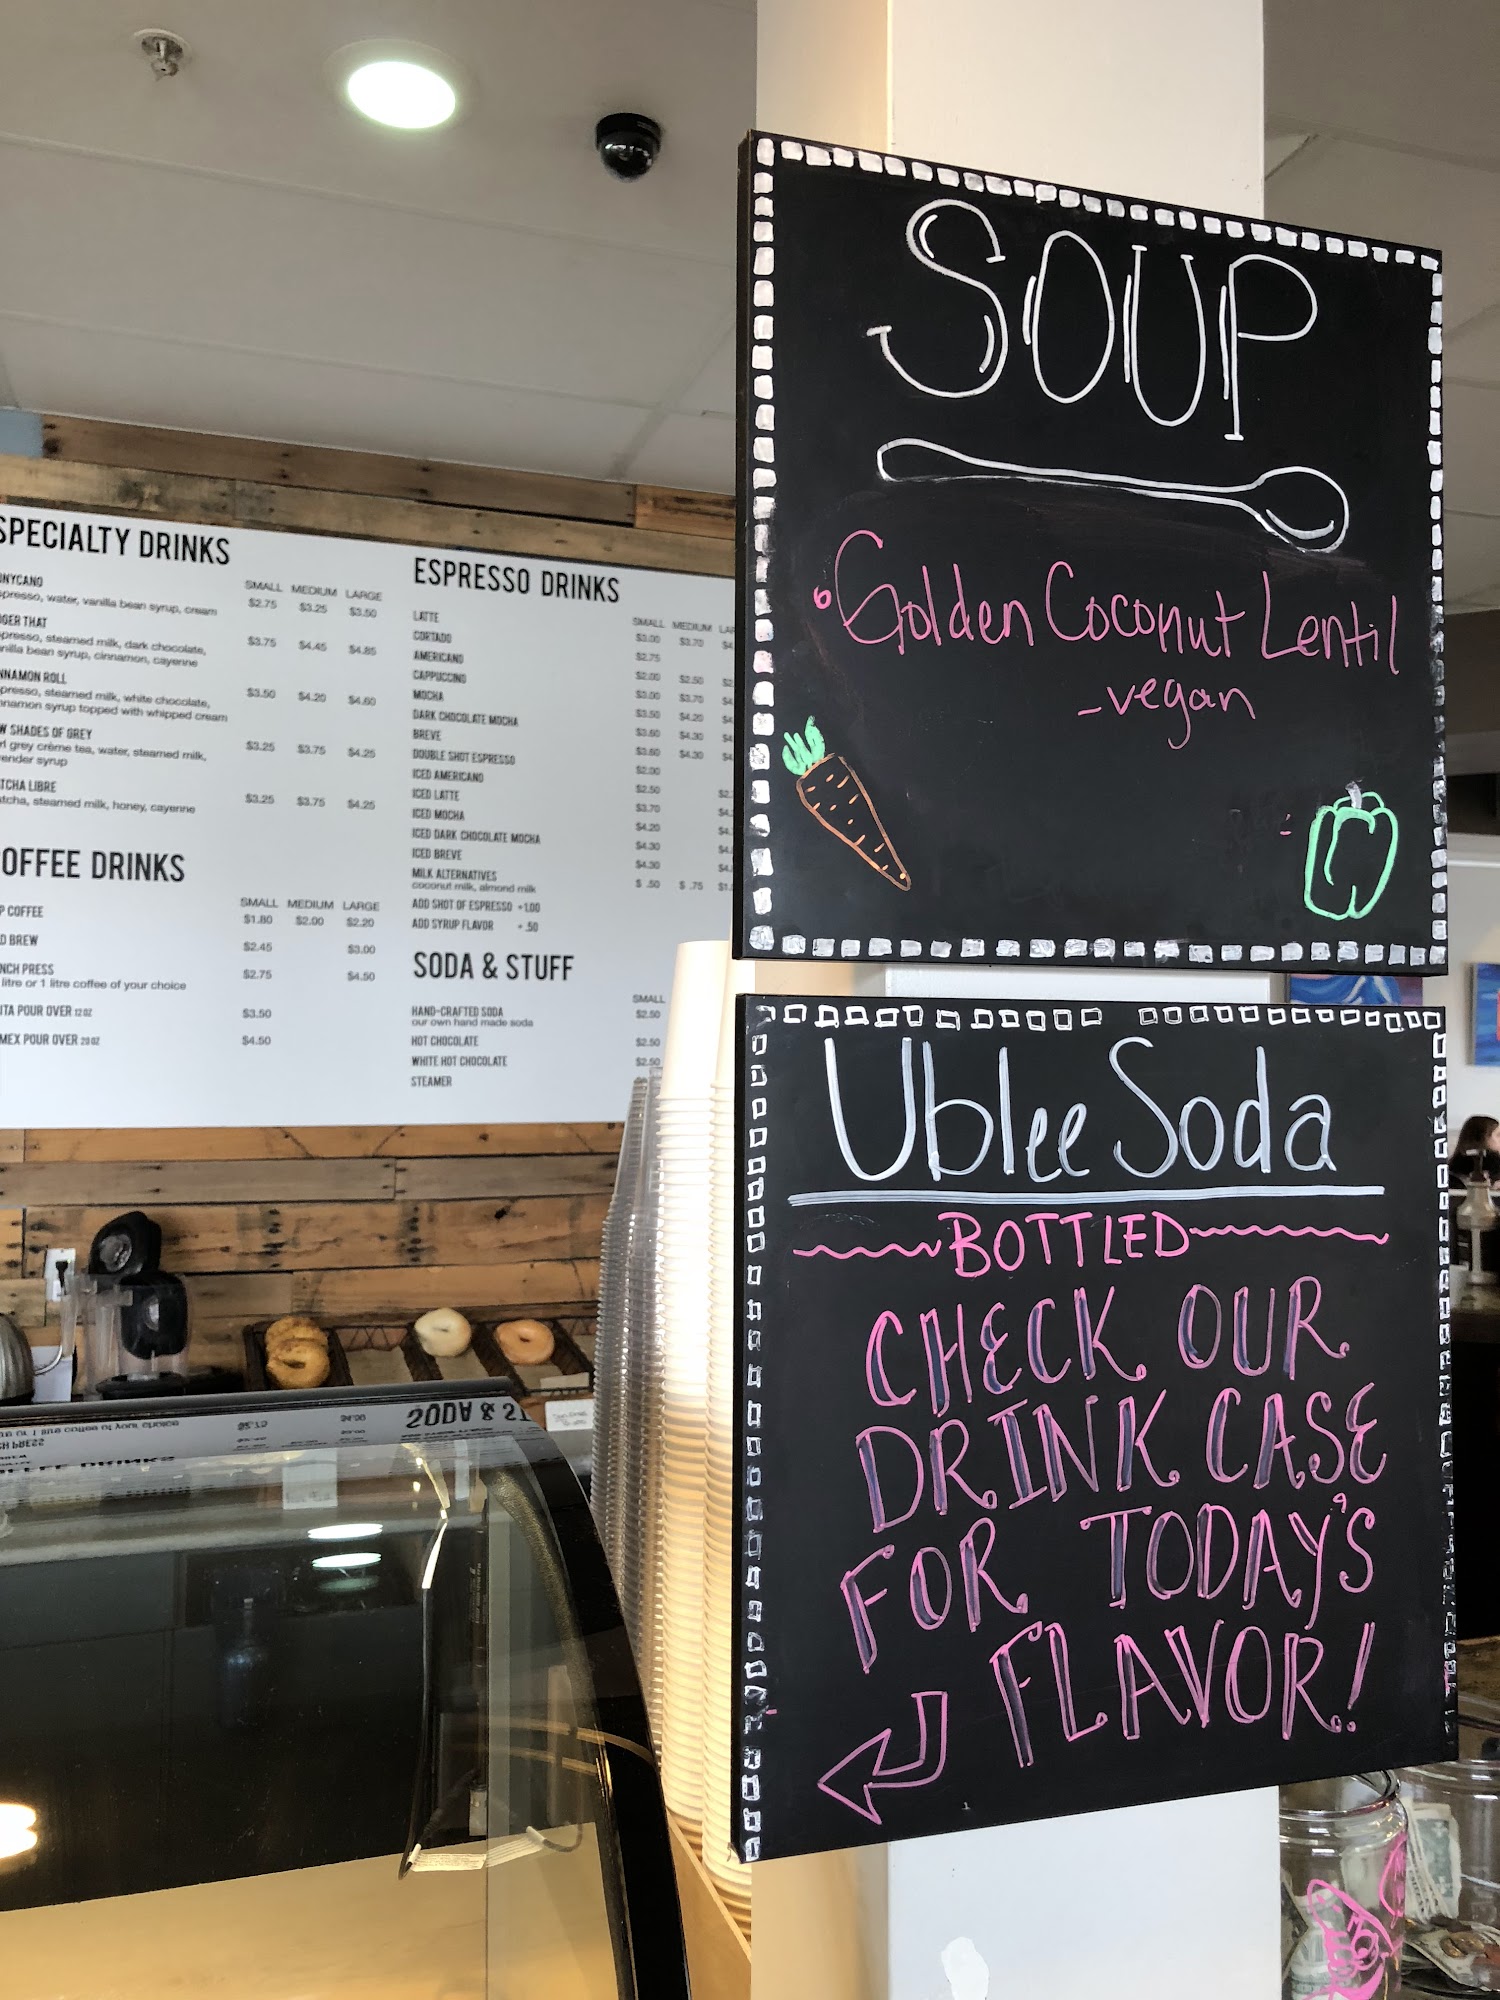 SPECIALTY DRINKS
SMALL MEDIUM LARGE
$2.75 $3.25 $3.50
water, vanilla bean syrup, cream
THAT
steamed milk, dark chocolate,
bean syrup, cinnamon, cayenne
$3.75 $4.45 $4.85
ROLL
steamed milk, white chocolate,
syrup topped with whipped cream
$3.50 $4.20 $4.60
SHADES OF GREY
grey crème tea, water, steamed milk,
syrup
$3.25 $3.75 $4.25
LIBRE
steamed milk, honey, cayenne
$3.25 $3.75 $4.25
OFFEE DRINKS
SMALL MEDIUM LARGE
COFFEE $1.80 $2.00 $2.20
BREW $2.45 $3.00
PRESS $2.75 $4.50
litre or 1 litre coffee of your choice
POUR OVER 12 OZ $3.50
POUR OVER 20 OZ $4.50
ESPRESSO DRINKS
SMALL MEDIUM
LATTE $3.00 $3.70
CORTADO $2.75
AMERICANO $2.00 $2.50
CAPPUCCINO $3.00 $3.70
MOCHA $3.50 $4.20
DARK CHOCOLATE MOCHA $3.60 $4.30
BREVE $3.60 $4.30
DOUBLE SHOT ESPRESSO $2.00
ICED AMERICANO $2.50
ICED LATTE $3.70
ICED MOCHA $4.20
ICED DARK CHOCOLATE MOCHA $4.30
ICED BREVE $4.30
MILK ALTERNATIVES $ .50 $ .75
coconut milk, almond milk
ADD SHOT OF ESPRESSO +1.00
ADD SYRUP FLAVOR + .50
SODA & STUFF
SMALL
HAND-CRAFTED SODA $2.50
our own hand made soda
HOT CHOCOLATE $2.50
WHITE HOT CHOCOLATE $2.50
STEAMER
SOUP
Golden Coconut Lentil
-vegan
Ublee Soda
BOTTLED
CHECK OUR
DRINK CASE
FOR TODAY'S
FLAVOR!